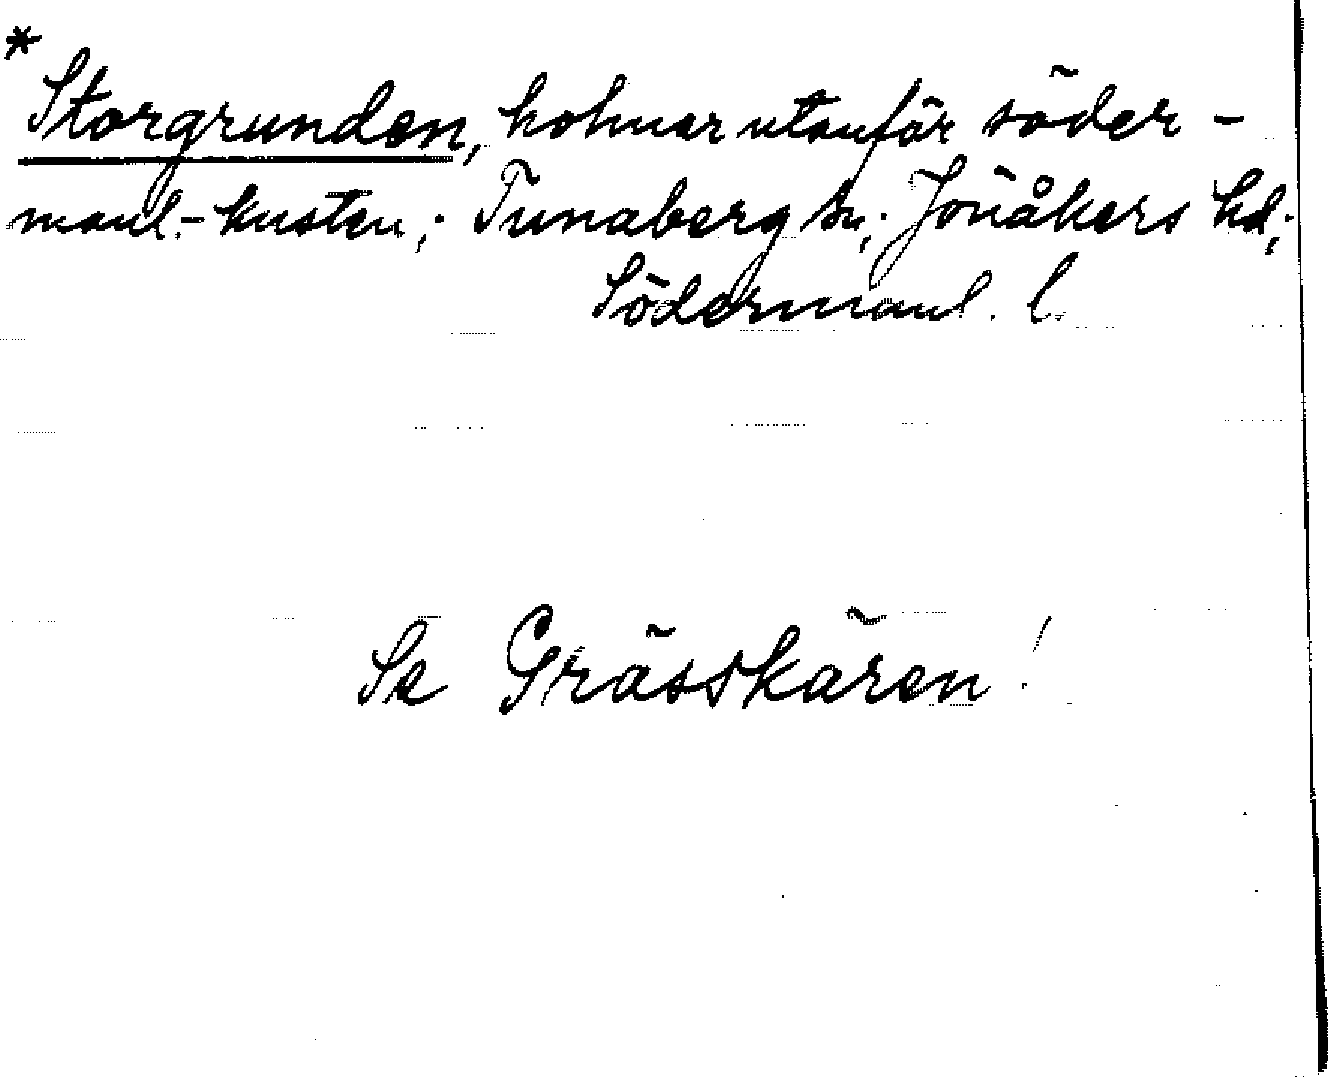 *
Storgrunden, holmar utanför söder-
manl.-kusten; Tunaberg sn; Jönåkers hd;
Södermanl. l.
Se Grässkären!